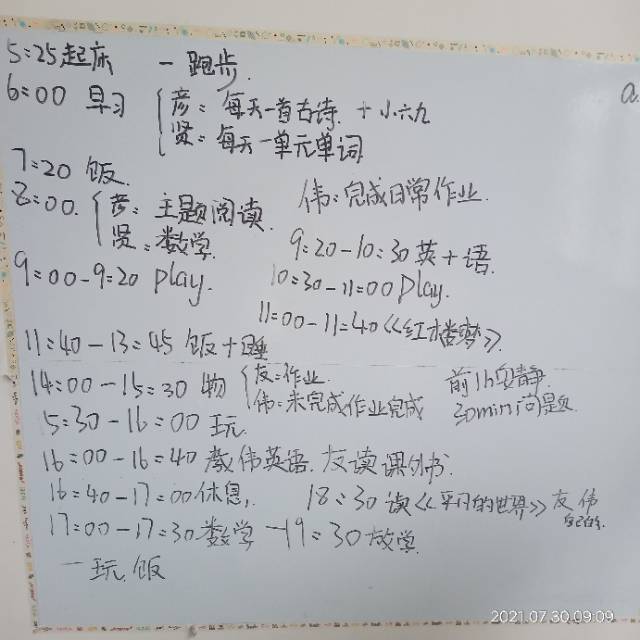 5:25起床 — 跑步.
a.
6:00 早习 彦: 每天一首古诗. + 小六九
贤: 每天一单元单词
7:20 饭.
8:00. 彦: 主题阅读. 伟: 完成日常作业.
贤: 数学.
9:20-10:30 英+语.
9:00-9:20 play.
10:30-11:00 play.
11:00-11:40《红楼梦》.
11:40-13:45 饭+睡
14:00-15:30 物 友: 作业. 前1h安静.
伟: 未完成作业完成 30min问题.
5:30-16:00 玩.
16:00-16:40 教伟英语. 友读课外书.
16:40-17:00休息, 18:30 读《平凡的世界》友 伟
17:00-17:30 数学 -19:30 放学.
— 玩. 饭
2021.07.30 09:09